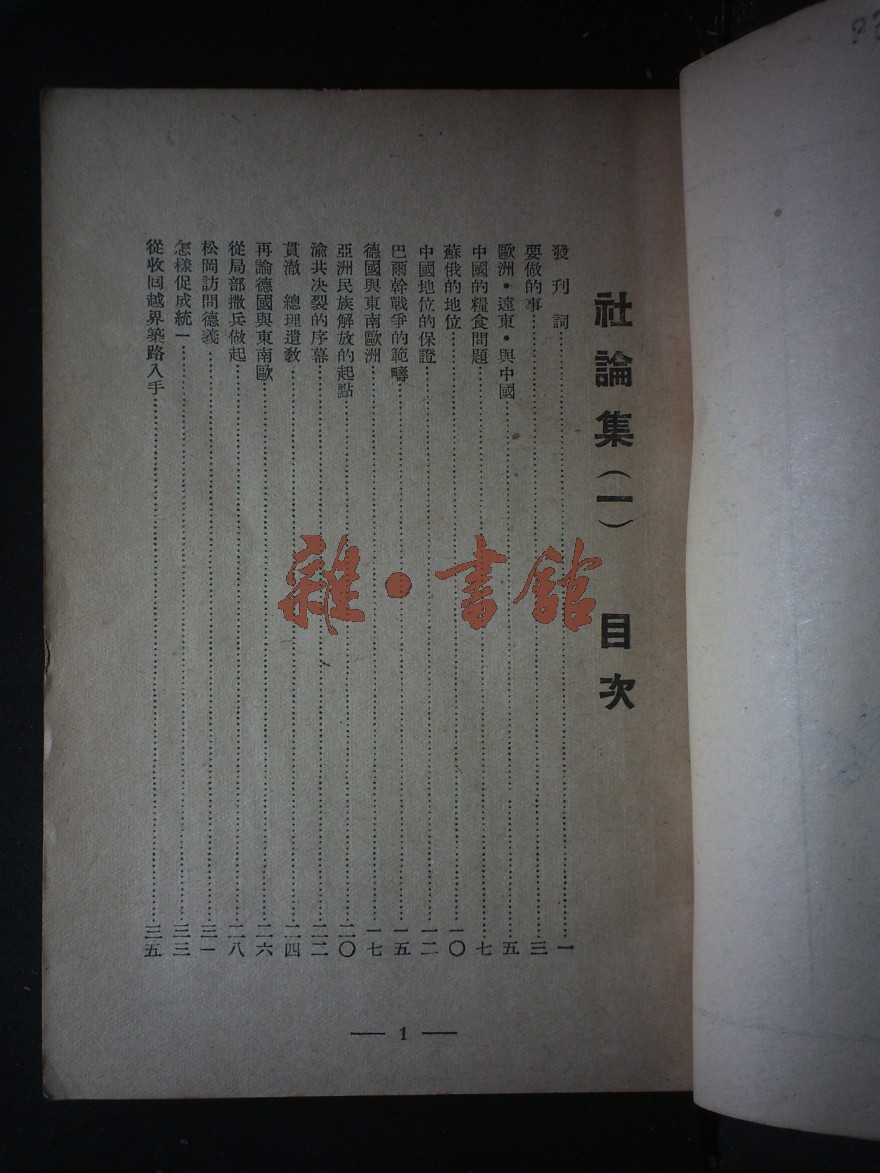 社論集（一） 目次
發刊詞……一
要做的事……三
歐洲・遠東・與中國……五
中國的糧食問題……七
蘇俄的地位……一〇
中國地位的保證……一二
巴爾幹戰爭的範疇……一五
德國與東南歐洲……一七
亞洲民族解放的起點……二〇
渝共决裂的序幕……二二
貫澈 總理遺敎……二四
再論德國與東南歐……二六
從局部撤兵做起……二八
松岡訪問德義……三一
怎樣促成統一……三三
從收回越界築路入手……三五
— 1 —
雜・書館